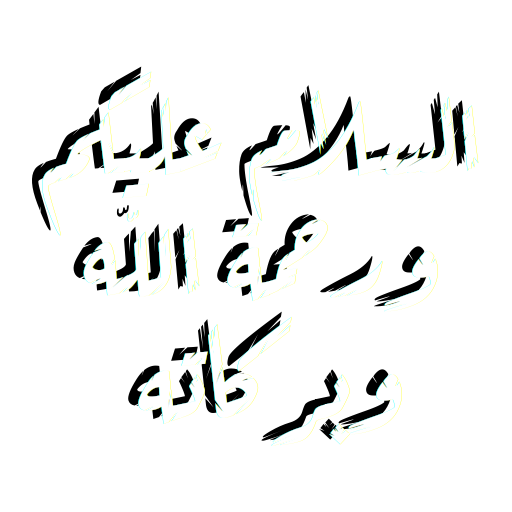 السلام عليكم
ورحمة الله
وبركاته